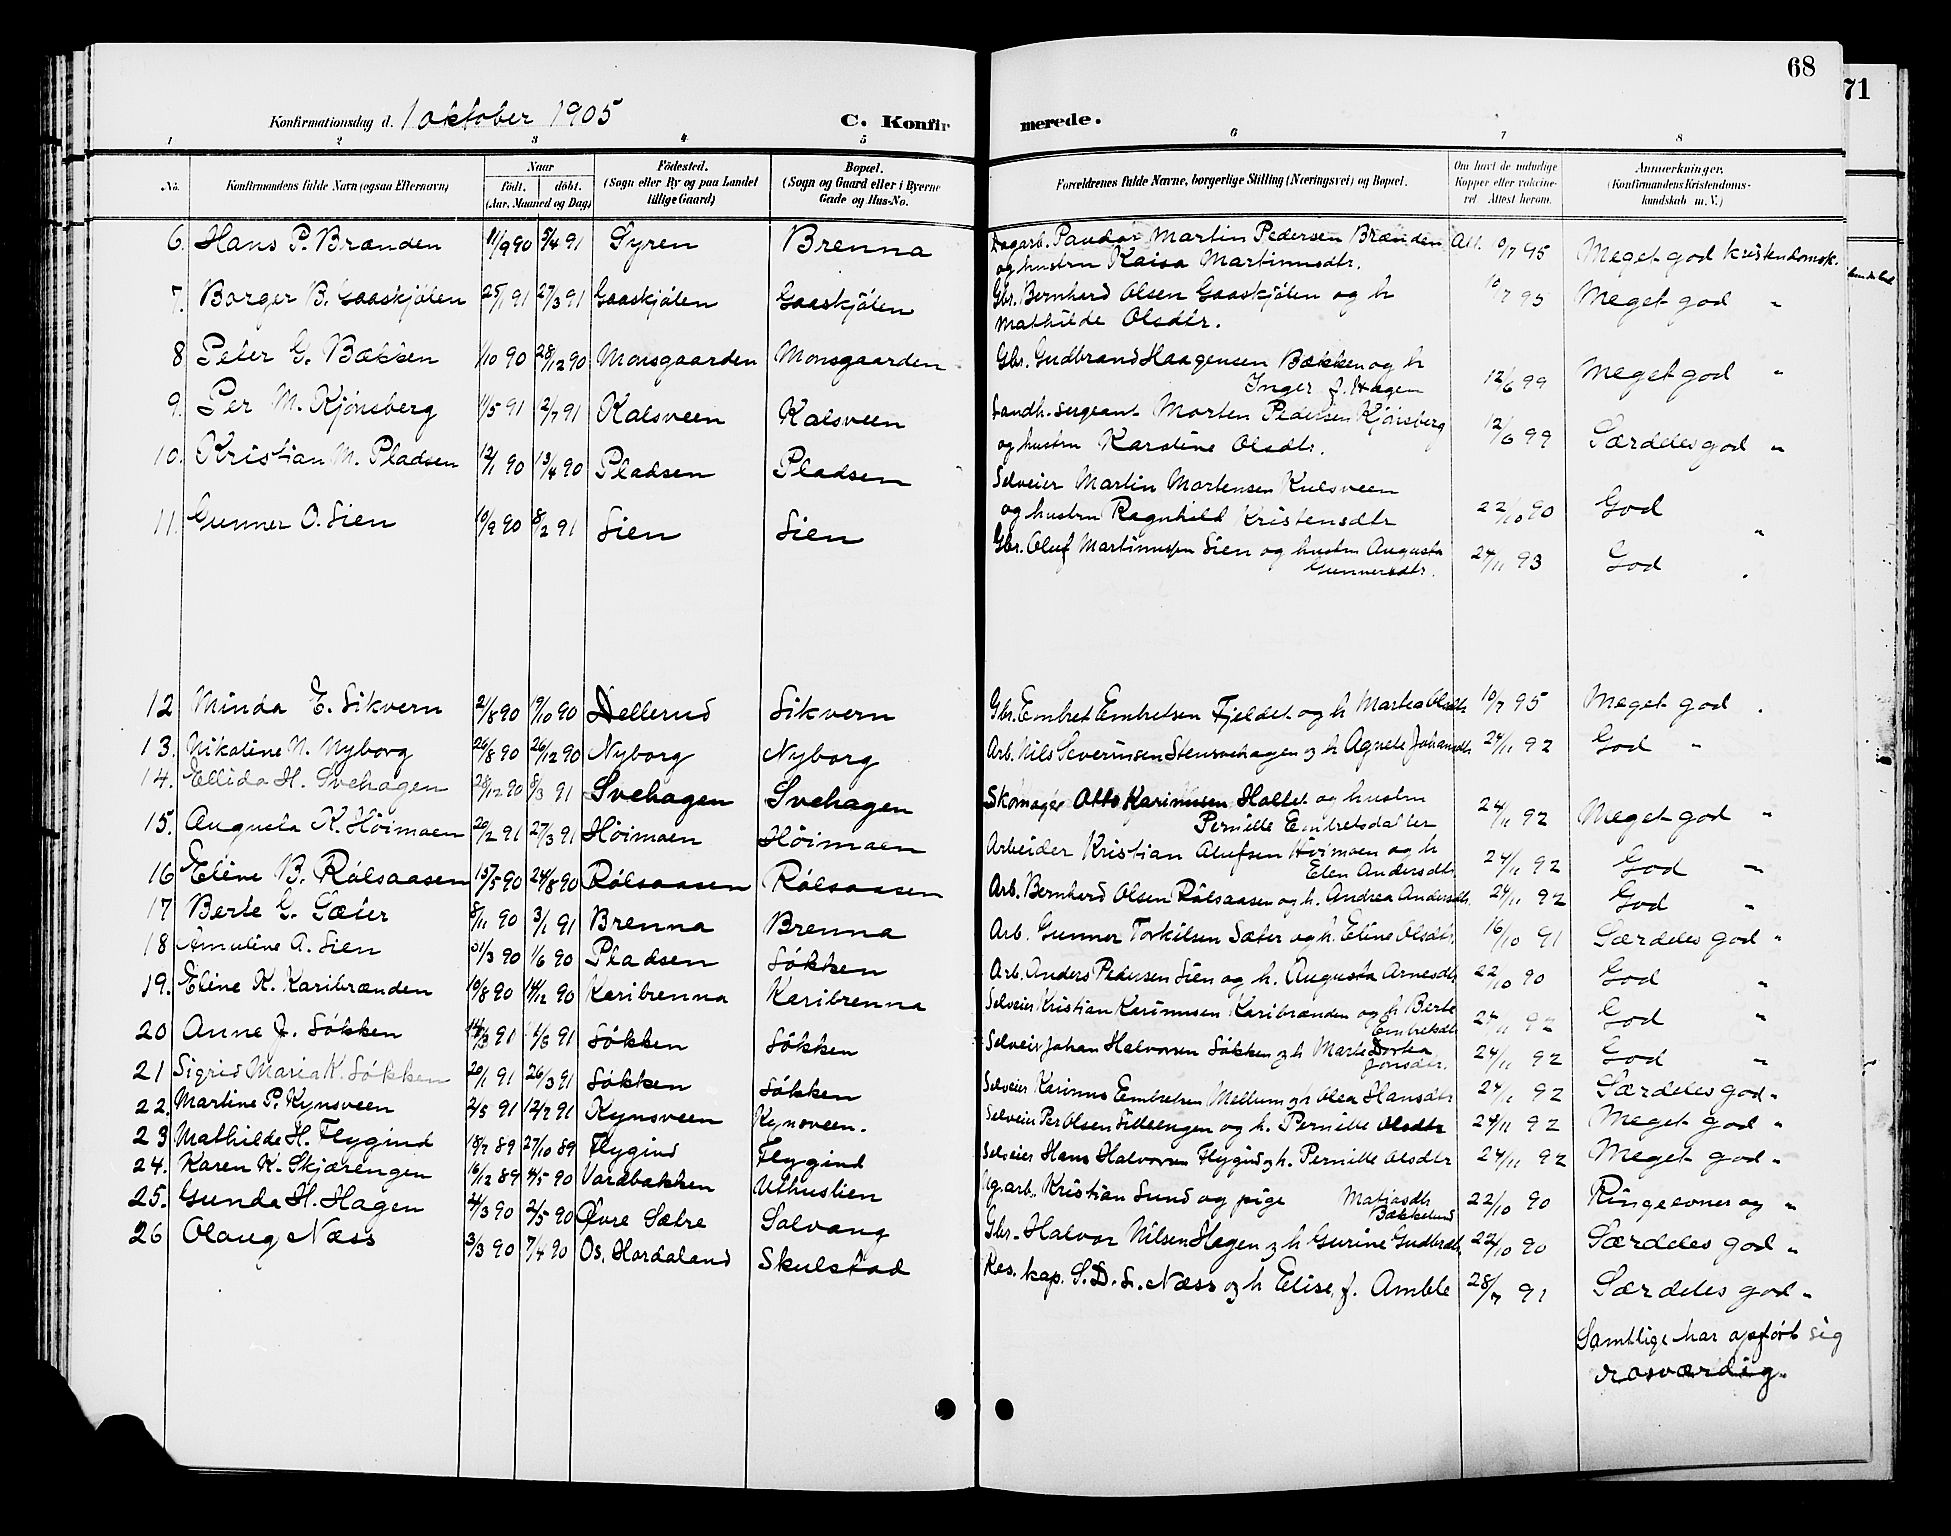 68
71
Konfirmationsdag d. 1 oktober 1905
C. Konfirmerede.
1 2 3 4 5 6 7 8
No.
Konfirmandens fulde Navn (ogsaa Efternavn)
Naar
født. døbt.
(Aar, Maaned og Dag)
Fødested.
(Sogn eller By og paa Landet
tillige Gaard)
Bopæl.
(Sogn og Gaard eller i Byerne
Gade og Hus-No.
Forældrenes fulde Navne, borgerlige Stilling (Næringsvei) og Bopæl.
Om havt de naturlige
Kopper eller vakcine-
ret. Attest herom.
Anmerkninger.
(Konfirmandens Kristendoms-
kundskab m. V.)
6. Hans P. Brænden 11/9 90 5/4 91 Syren Brenna
Dagarb. Peder Martin Pedersen Brænden
og hustru Kaisa Martinusdtr. Att. 10/7 95 Meget god kristendomsk.
7. Borger B. Gaaskjølen 25/1 91 27/3 91 Gaaskjølen Gaaskjølen
Gbr. Bernhard Olsen Gaaskjølen og h
Mathilde Olsdtr. 10/7 95 Meget god "
8 Peter G. Bækken 1/10 90 28/12 90 Monsgaarden Monsgaarden
Gbr. Gudbrand Haagensen Bækken og h
Inger f. Hagen 12/6 99 Meget god "
9. Per M. Kjønsberg 11/5 91 2/7 91 Kalsveen Kalsveen
Landh. sergeant Morten Pedersen Kjønsberg
og hustru Karoline Olsdtr. 12/6 99 Særdeles god "
10. Kristian M. Pladsen 12/1 90 13/4 90 Pladsen Pladsen
Selveier Martin Mortensen Kulsveen
og hustru Ragnhild Kristensdtr 22/10 90 God "
11. Gunner O. Lien 10/9 90 8/2 91 Lien Lien
Gbr. Oluf Martinussen Lien og hustru Augusta
Gunnersdtr. 24/11 93 God "
12 Minda E. Sikvern 21/8 90 19/10 90 Nellerud Sikvern
Gbr. Embret Embretsen Fjeldet og h Martea Olsdtr 10/7 95 Meget god "
13. Nikoline N. Nyborg 26/8 90 26/12 90 Nyborg Nyborg
Arb. Nils Severinsen Stensvehagen og h Agnete Johansdtr 24/11 92 God "
14. Ellida H. Svehagen 28/12 90 8/3 91 Svehagen Svehagen
Skomager Otto Karinusen Holtet og hustru
Pernille Embretsdatter 24/11 92 Meget god "
15. Augusta K. Høimoen 20/2 91 27/3 91 Høimoen Høimoen
Arbeider Kristian Olufsen Høimoen og h
Elen Andersdtr 24/11 92 God "
16 Eline B. Rølsaasen 15/5 90 24/8 90 Rølsaasen Rølsaasen
Arb. Bernhard Olsen Rølsaasen og h. Andrea Andersdtr. 24/11 92 God "
17 Berte G. Sæter 8/11 90 3/1 91 Brenna Brenna
Arb. Gunner Torkilsen Sæter og h. Eline Olsdtr 16/10 91 Særdeles god "
18 Amuline A. Lien 31/3 90 1/6 90 Pladsen Løkken
Arb. Anders Pedersen Lien og h. Augusta Arnesdtr 22/10 90 God "
19. Eline K. Karibrænden 10/8 90 14/12 90 Karibrenna Karibrenna
Selveier Kristian Karinusen Karibrænden og h Berte
Embretsdtr 24/11 92 God "
20 Anne J. Løkken 14/3 91 1/6 91 Løkken Løkken
Selveier Johan Halvorsen Løkken og h Marte Dortea
Jonsdtr. 24/11 92 God "
21 Sigrid Maria K. Løkken 20/1 91 26/3 91 Løkken Løkken
Selveier Karinus Embretsen Mellum og h Olea Hansdtr 24/11 92 Særdeles god "
22. Martine P. Kynsveen 2/5 91 12/7 91 Kynsveen Kynsveen.
Selveier Per Olsen og h. Pernille Olsdtr 24/11 92 Meget god "
23 Mathilde H. Flygind 18/7 89 27/10 89 Flygind Flygind
Selveier Hans Halvorsen Flygind og h. Pernille Olsdtr 24/11 92 Meget god "
24. Karen K. Skjærengen 16/12 89 4/5 90 Vardbakken Uthuslien
Ug. arb. Kristian Lund og pige Matiasdtr
Bækkelund 22/10 90 Ringe evner og "
25. Gunda H. Hagen 24/3 90 2/5 90 Øvre Sætre Solvang
Gbr. Halvor Nilsen Hagen og h Gurine Gudbrdtr. 22/10 90 Særdeles god "
26 Olaug Næss 3/3 90 7/4 90 Os. Hordaland Skulstad
Res. kap. S. D. L. Næss og h Elise, f. Amble 28/7 91 Særdeles god "
Samtlige har opført sig
rosværdig.